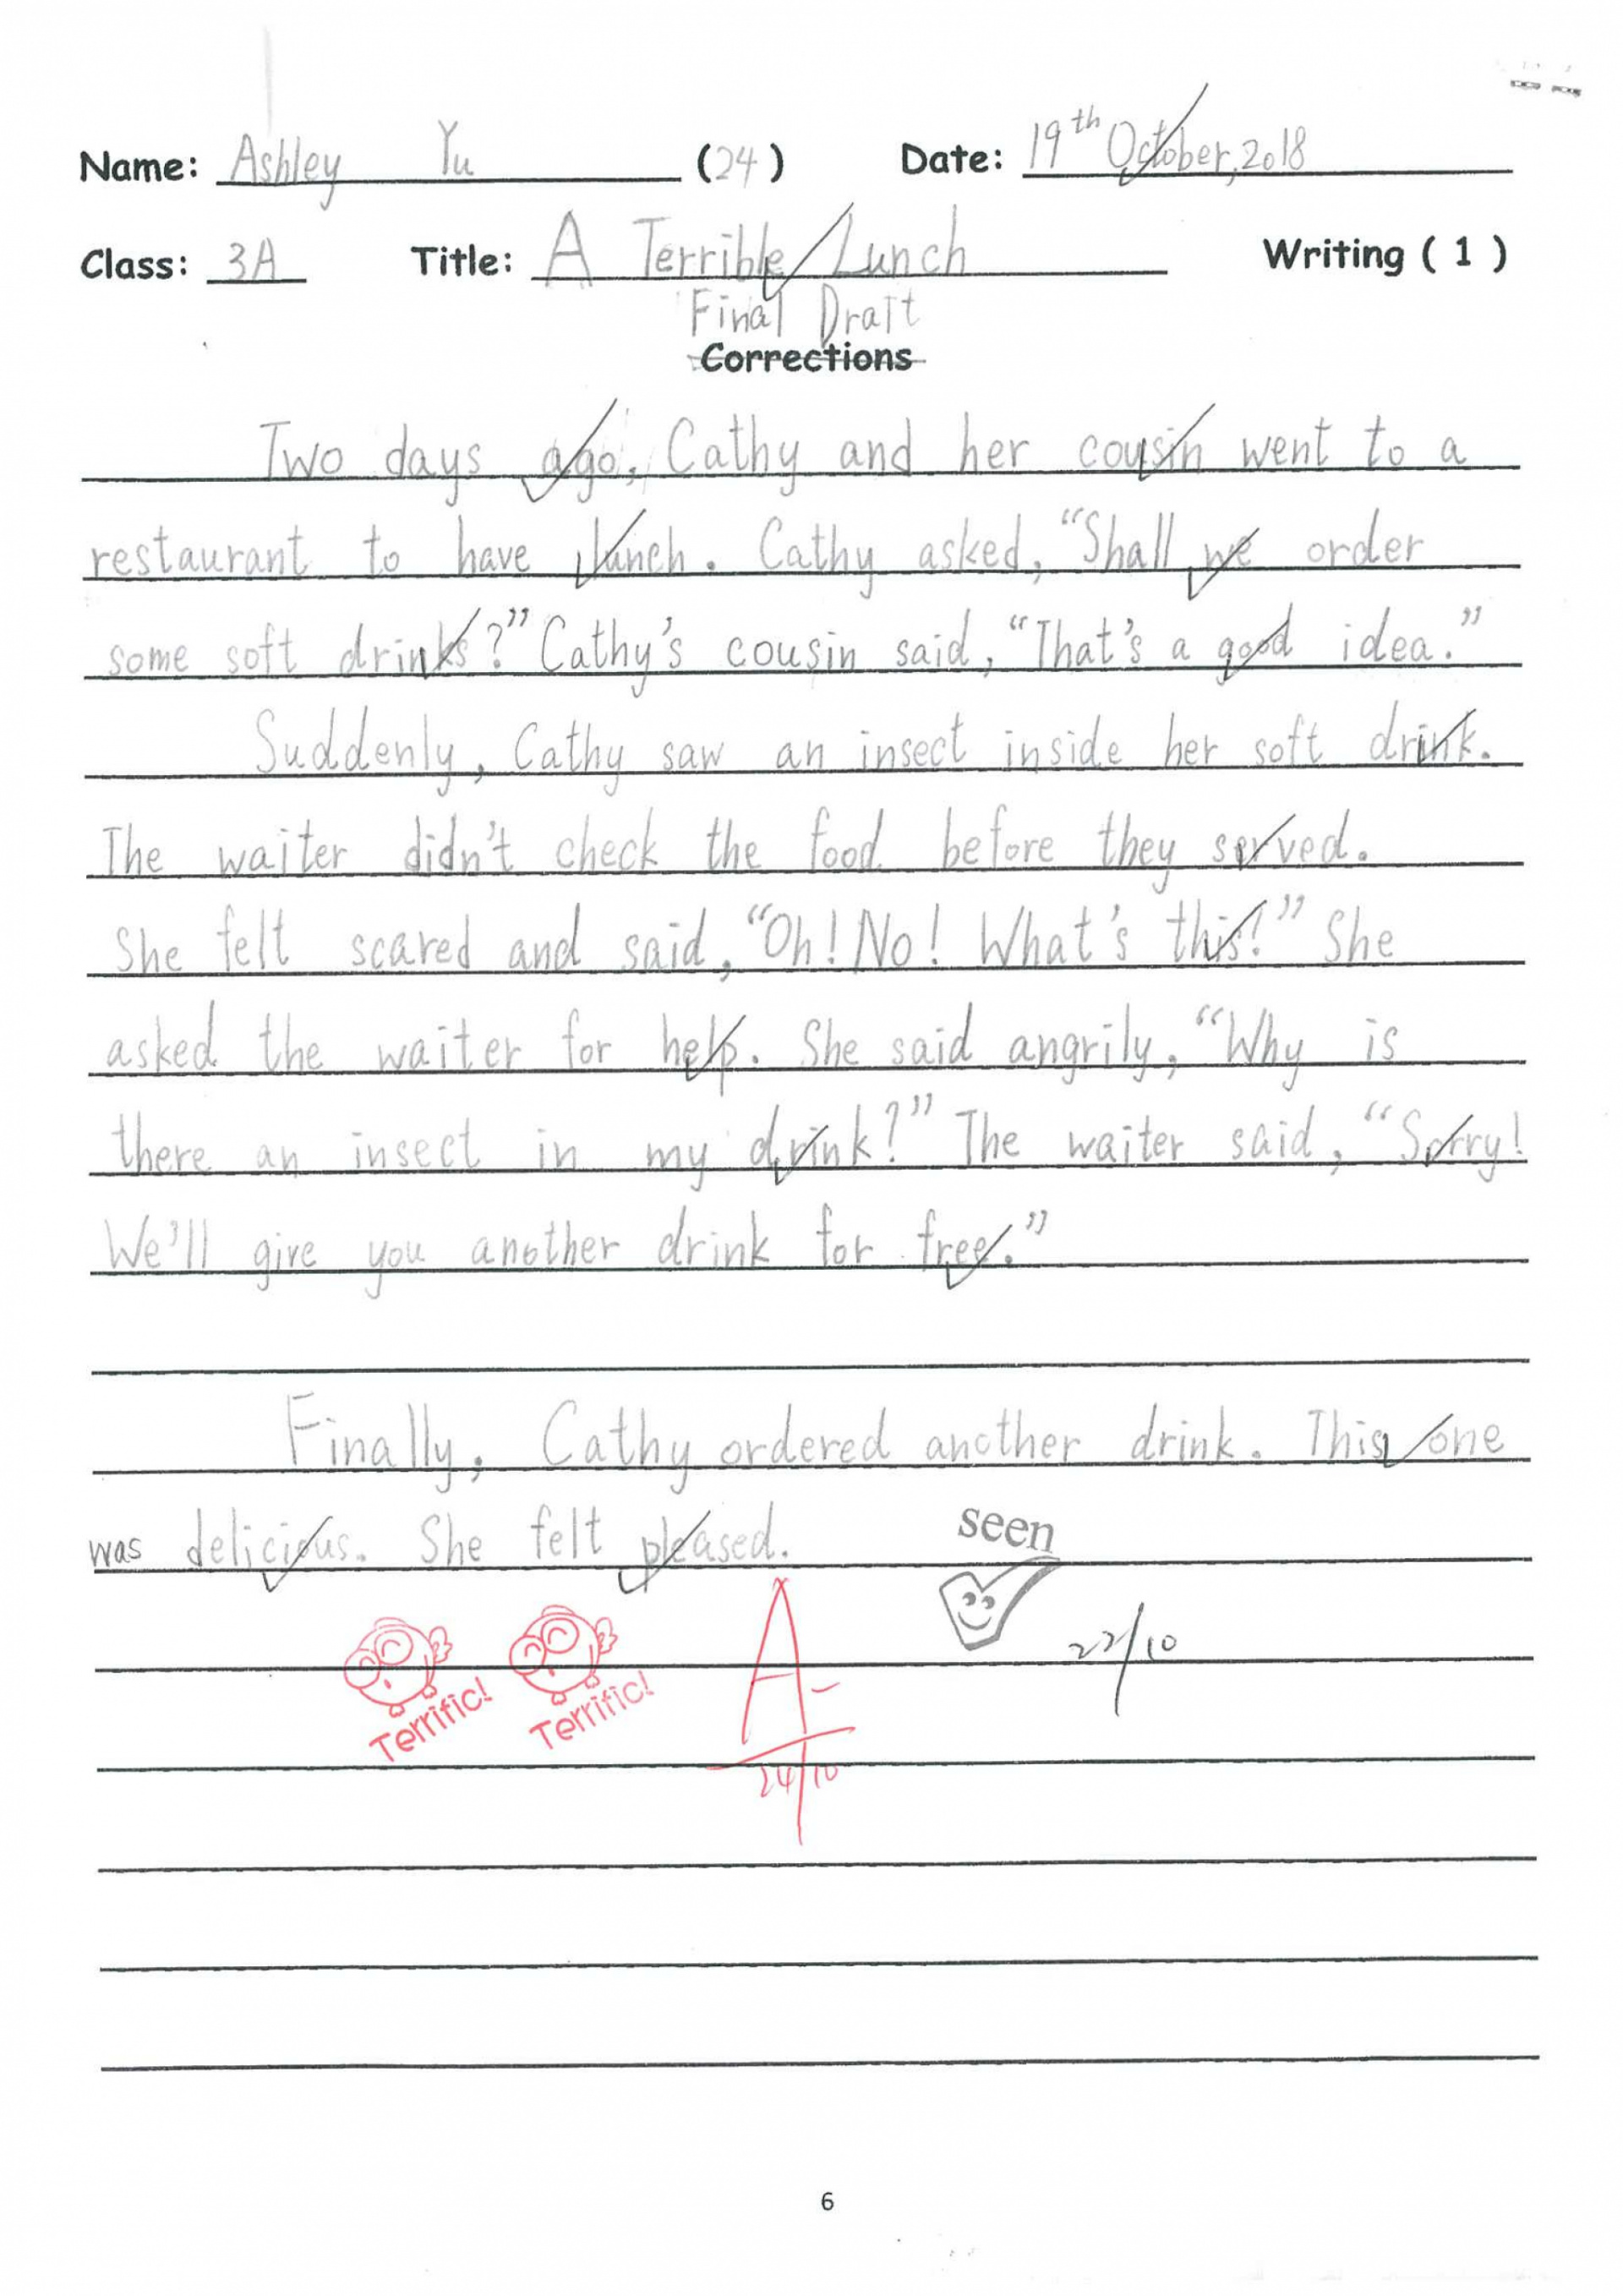 Name: Ashley Yu (24) Date: 19th October, 2018
Class: 3A Title: A Terrible Lunch Writing ( 1 )
Final Draft
Corrections
Two days ago, Cathy and her cousin went to a
restaurant to have lunch. Cathy asked, “Shall we order
some soft drinks?” Cathy's cousin said, “That's a good idea.”
Suddenly, Cathy saw an insect inside her soft drink.
The waiter didn't check the food before they served.
She felt scared and said, “Oh! No! What's this!” She
asked the waiter for help. She said angrily, “Why is
there an insect in my drink?” The waiter said, “Sorry!
We'll give you another drink for free.”
Finally, Cathy ordered another drink. This one
was delicious. She felt pleased.
seen
22/10
Terrific! Terrific!
A-
24/10
6